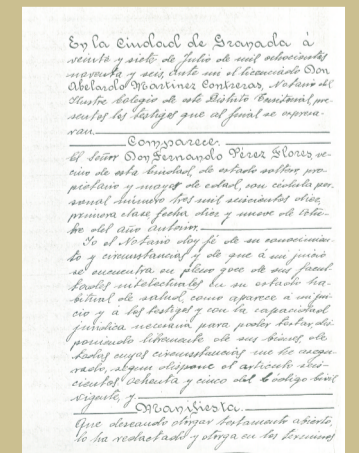 En la Ciudad de Granada á
veinte y siete de Julio de mil ochocientos
noventa y seis, ante mi el licenciado Don
Abelardo Martinez Contreras, Notario del
Ilustre Colegio de este Distrito Territorial, pre-
sentes los testigos que al final se expresa-
ran.
Comparece.
El Señor Don Fernando Pérez Flores, ve-
cino de esta Ciudad, de estado soltero, pro-
pietario y mayor de edad, con cédula per-
sonal número tres mil seiscientos diez,
primera clase fecha diez y nueve de Octu-
bre del año anterior.
Yo el Notario doy fé de su conocimien-
to y circunstancias y de que á mi juicio
se encuentra en pleno goce de sus facul-
tades intelectuales en su estado ha-
bitual de salud, como aparece á mi jui-
cio y á los testigos y con la capacidad
juridica necesaria para poder testar dis-
poniendo libremente de sus bienes, de
todas cuyas circunstancias me he asegu-
rado, segun dispone el articulo seis-
cientos ochenta y cinco del Código Civil
vigente, y
Manifiesta.
Que deseando otorgar testamento abierto,
lo ha redactado y otorga en los terminos